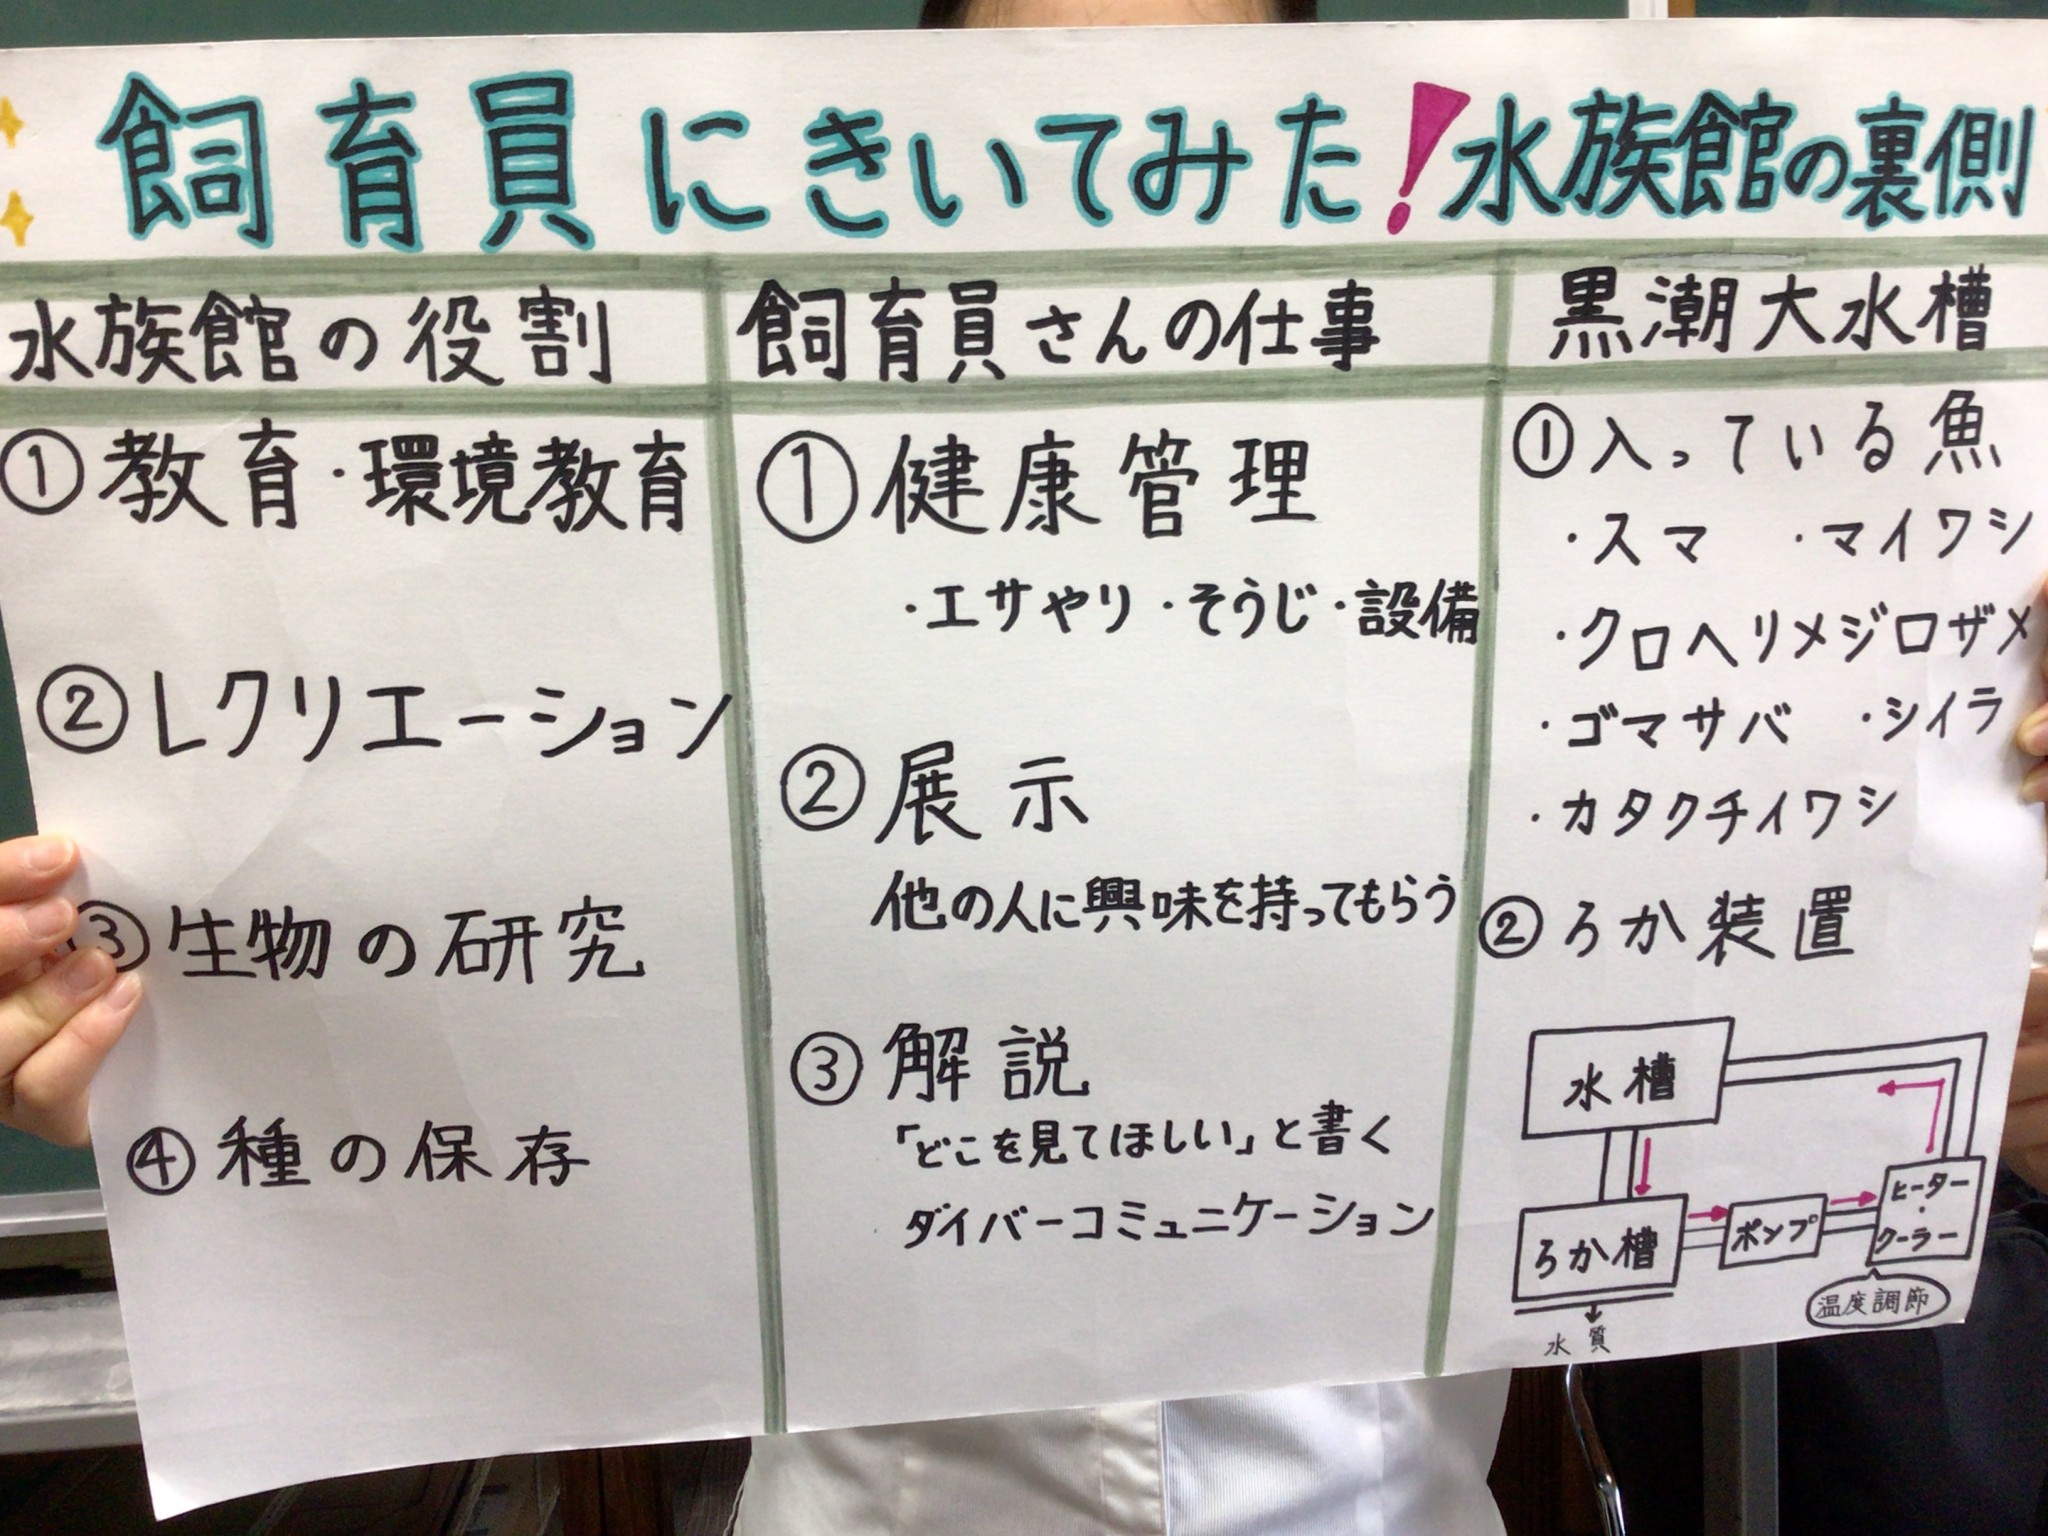 飼育員にきいてみた!水族館の裏側
水族館の役割
①教育・環境教育
②レクリエーション
③生物の研究
④種の保存
飼育員さんの仕事
①健康管理
・エサやり・そうじ・設備
②展示
他の人に興味を持ってもらう
③解説
「どこを見てほしい」と書く
ダイバーコミュニケーション
黒潮大水槽
①入っている魚
・スマ ・マイワシ
・クロヘリメジロザメ
・ゴマサバ ・シイラ
・カタクチイワシ
②ろか装置
水槽
ろか槽
ポンプ
ヒーター
・
クーラー
温度調節
水質